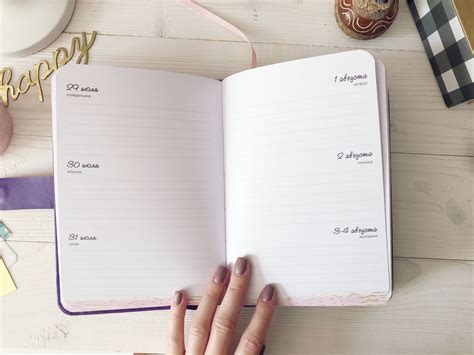 happy
29 июля
понедельник
30 июля
вторник
31 июля
среда
1 августа
четверг
2 августа
пятница
3-4 августа
выходные